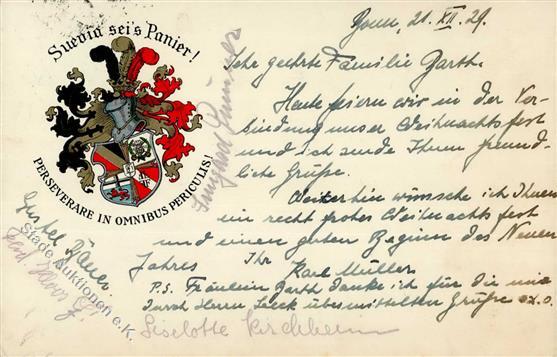 Suevia sei's Panier!
PERSEVERARE IN OMNIBUS PERICULIS!
Bonn, 21. XII. 29.
Sehr geehrte Familie Barth.
Heute feiern wir in der Ver-
bindung unser Weihnachtsfest
und ich sende Ihnen freund-
liche Grüße.
Weiterhin wünsche ich Ihnen
ein recht frohes Weihnachtsfest
und einen guten Beginn des Neuen
Jahres Ihr
Karl Müller
P.S. Fräulein Barth danke ich für die mir
durch Herrn Leck übermittelten Grüße
Liselotte Kirchheim
Stade Auktionen e.K.